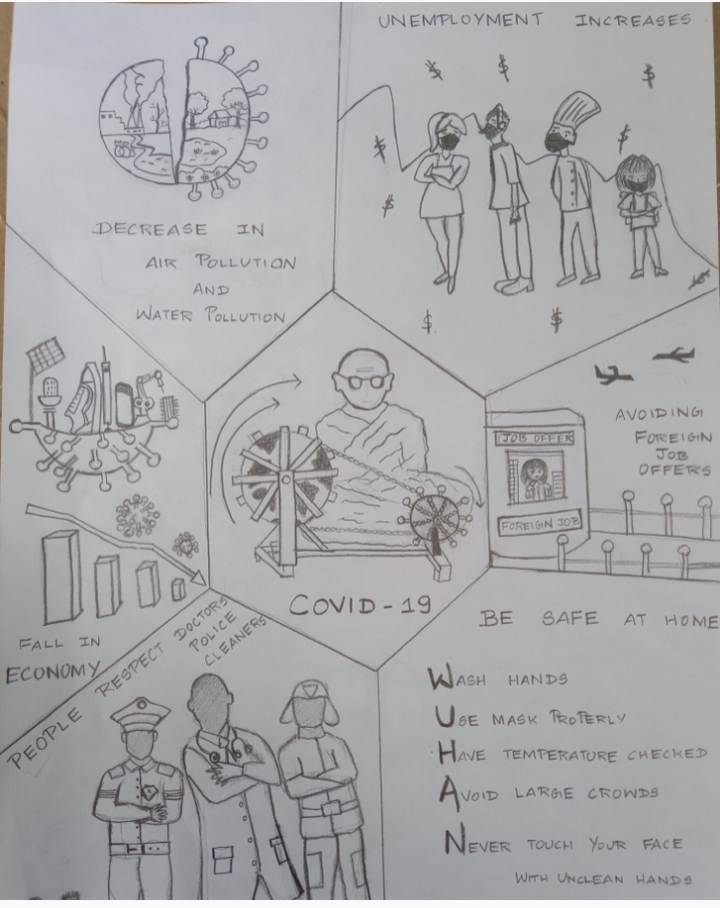 UNEMPLOYMENT INCREASES
$
$
$
$
$
$
$
$
$
DECREASE IN
AIR POLLUTION
AND
WATER POLLUTION
AVOIDING
FOREIGN
JOB
OFFERS
JOB OFFER
FOREIGN JOB
COVID-19
FALL IN
ECONOMY
PEOPLE RESPECT DOCTORS
POLICE
CLEANERS
BE SAFE AT HOME
WASH HANDS
USE MASK PROPERLY
HAVE TEMPERATURE CHECKED
AVOID LARGE CROWDS
NEVER TOUCH YOUR FACE
WITH UNCLEAN HANDS